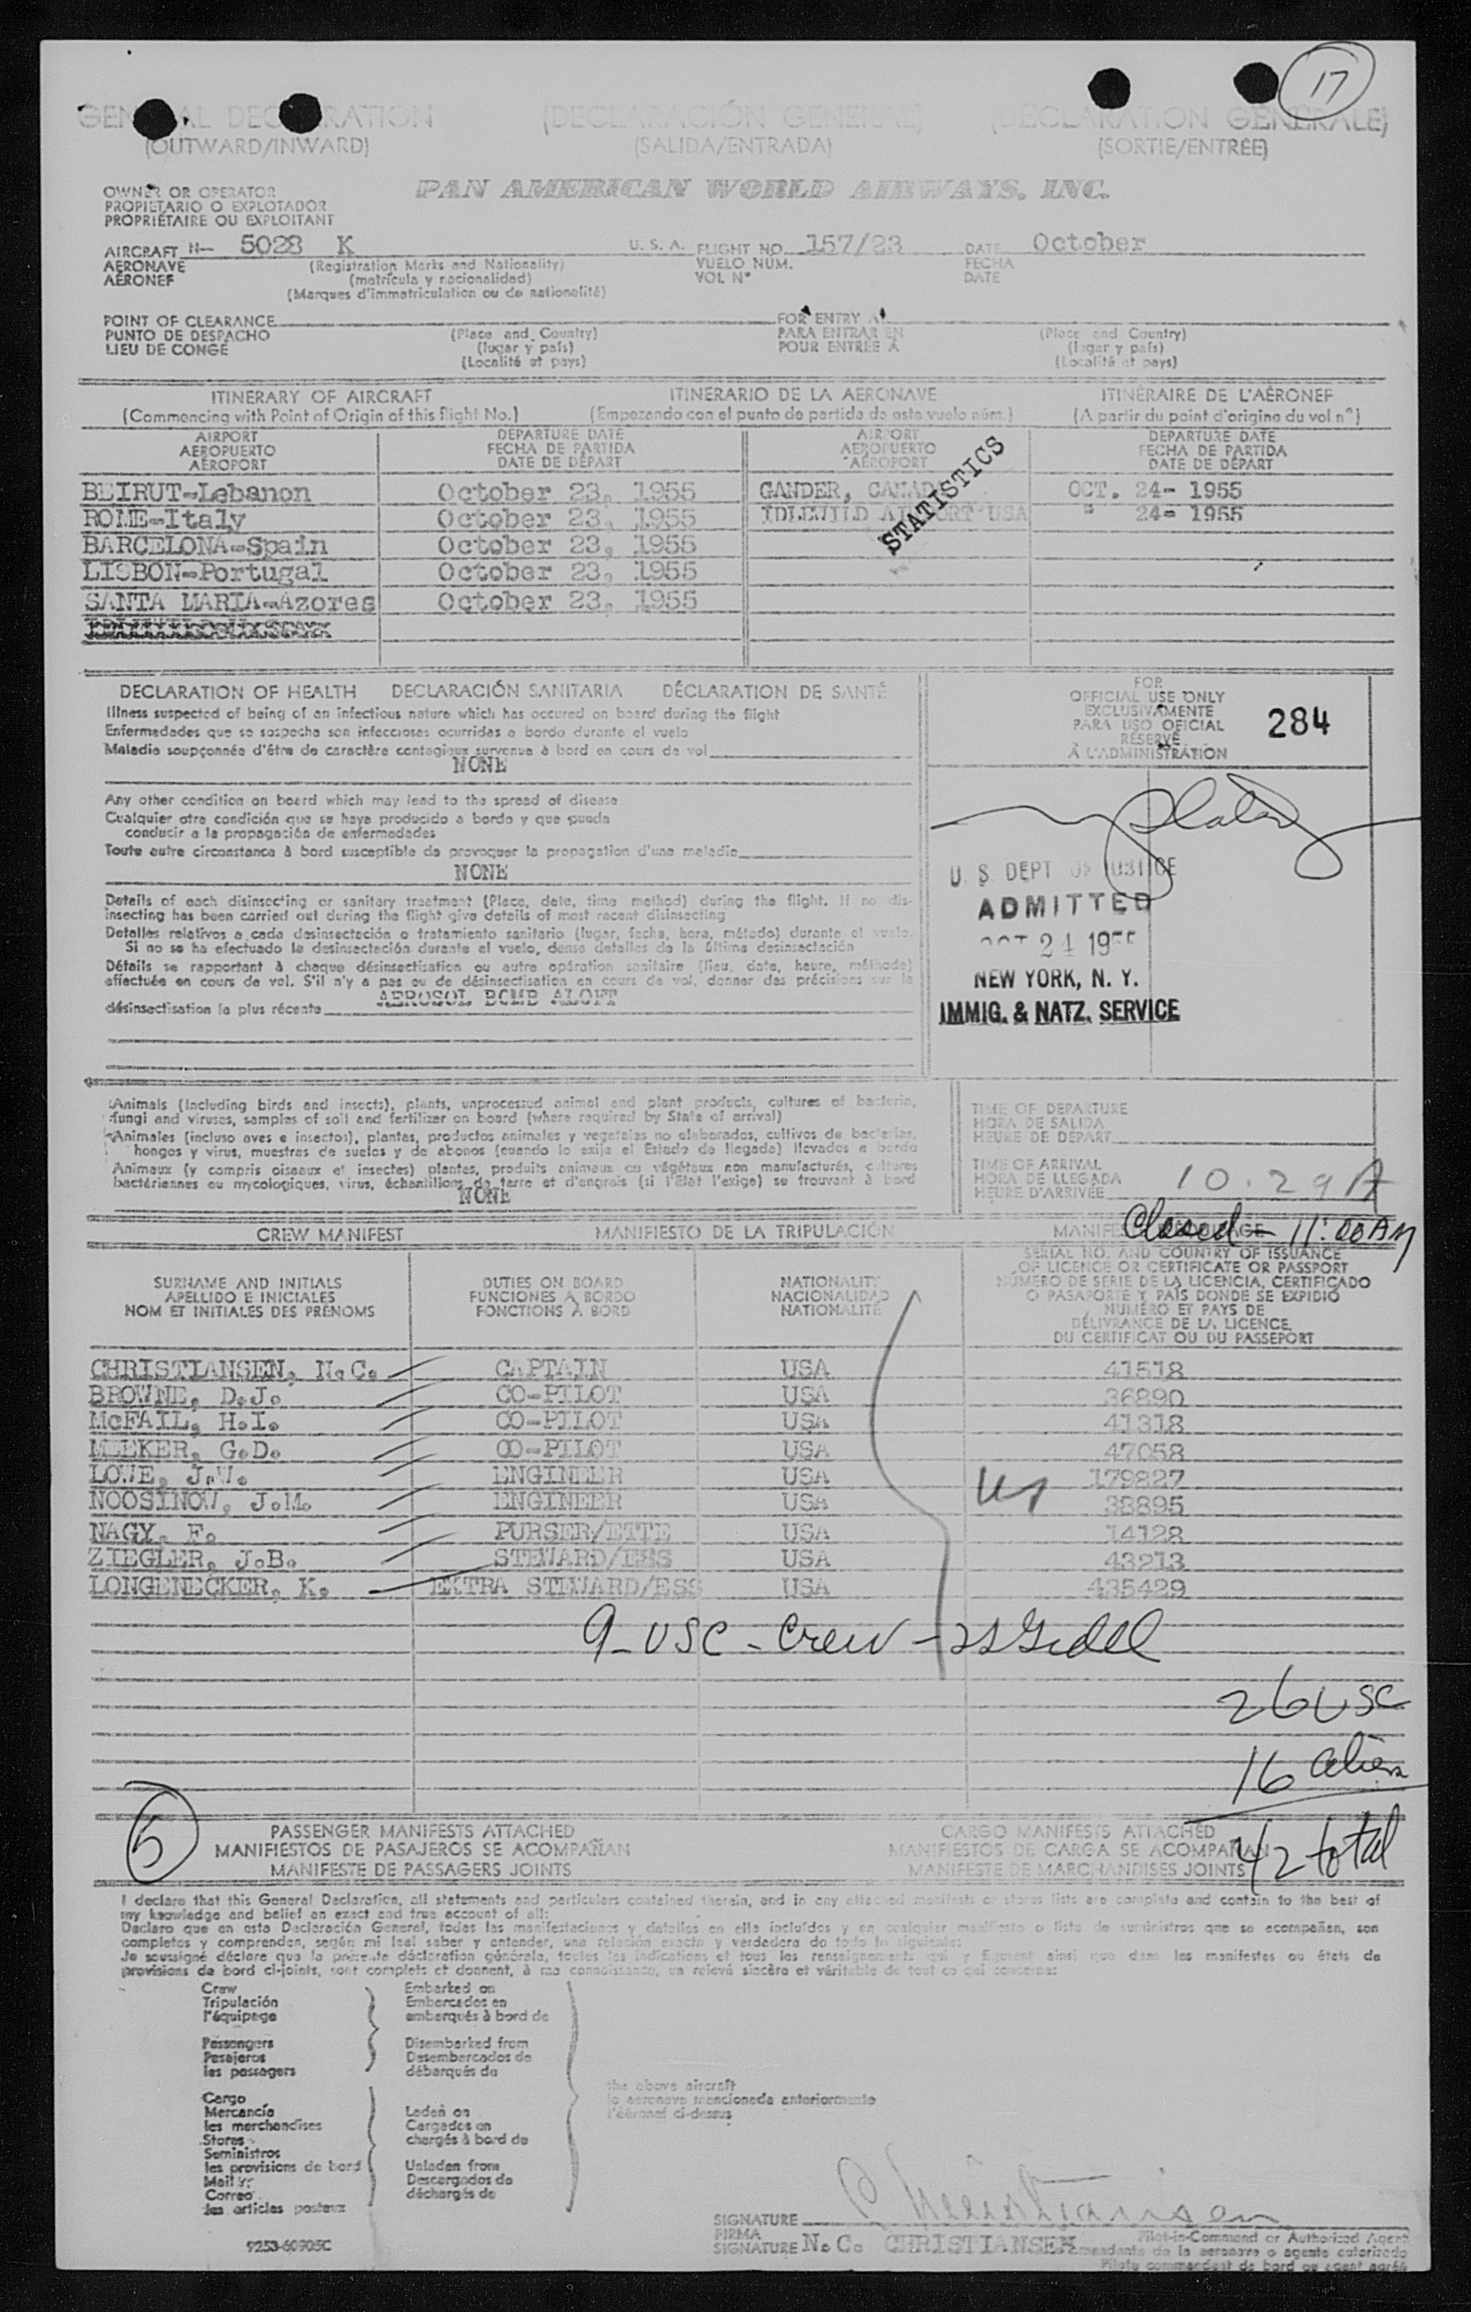 17
GENERAL DECLARATION (DECLARACIÓN GENERAL) (DECLARATION GÉNÉRALE)
(OUTWARD/INWARD) (SALIDA/ENTRADA) (SORTIE/ENTRÉE)
OWNER OR OPERATOR PAN AMERICAN WORLD AIRWAYS, INC.
PROPIETARIO O EXPLOTADOR
PROPRIÉTAIRE OU EXPLOITANT
AIRCRAFT N- 5028 K U. S. A. FLIGHT NO. 157/23 DATE October
AERONAVE (Registration Marks and Nationality) VUELO NÚM. FECHA
AÉRONEF (matrícula y nacionalidad) VOL N° DATE
(Marques d'immatriculation ou de nationalité)
POINT OF CLEARANCE FOR ENTRY AT
PUNTO DE DESPACHO (Place and Country) PARA ENTRAR EN (Place and Country)
LIEU DE CONGÉ (lugar y país) POUR ENTRÉE À (lugar y país)
(Localité et pays) (Localité et pays)
ITINERARY OF AIRCRAFT ITINERARIO DE LA AERONAVE ITINÉRAIRE DE L'AÉRONEF
(Commencing with Point of Origin of this flight No.) (Empezando con el punto de partida de este vuelo núm.) (A partir du point d'origine du vol n°)
AIRPORT DEPARTURE DATE AIRPORT DEPARTURE DATE
AEROPUERTO FECHA DE PARTIDA AEROPUERTO FECHA DE PARTIDA
AÉROPORT DATE DE DÉPART AÉROPORT DATE DE DÉPART
BEIRUT-Lebanon October 23, 1955 GANDER, CANADA OCT. 24- 1955
ROME-Italy October 23, 1955 IDLEWILD AIRPORT USA " 24- 1955
STATISTICS
BARCELONA-Spain October 23, 1955
LISBON-Portugal October 23, 1955
SANTA MARIA-Azores October 23, 1955
DECLARATION OF HEALTH DECLARACIÓN SANITARIA DÉCLARATION DE SANTÉ
Illness suspected of being of an infectious nature which has occured on board during the flight
Enfermedades que se sospecha son infecciosas ocurridas a bordo durante el vuelo
Maladie soupçonnée d'être de caractère contagieux survenue à bord en cours de vol
NONE
FOR
OFFICIAL USE ONLY
EXCLUSIVAMENTE
PARA USO OFICIAL
RÉSERVÉ
À L'ADMINISTRATION
284
Any other condition on board which may lead to the spread of disease
Cualquier otra condición que se haya producido a bordo y que pueda
conducir a la propagación de enfermedades
Toute autre circonstance à bord susceptible de provoquer la propagation d'une maladie
NONE
U. S. DEPT OF JUSTICE
ADMITTED
OCT 24 1955
NEW YORK, N. Y.
IMMIG. & NATZ. SERVICE
Details of each disinsecting or sanitary treatment (Place, date, time method) during the flight. If no dis-
insecting has been carried out during the flight give details of most recent disinsecting
Detalles relativos a cada desinsectación o tratamiento sanitario (lugar, fecha, hora, método) durante el vuelo.
Si no se ha efectuado la desinsectación durante el vuelo, dense detalles de la última desinsectación
Détails se rapportant à chaque désinsectisation ou autre opération sanitaire (lieu, date, heure, méthode)
effectuée en cours de vol. S'il n'y a pas eu de désinsectisation en cours de vol, donner des précisions sur la
désinsectisation la plus récente AEROSOL BOMB ALOFT
Animals (including birds and insects), plants, unprocessed animal and plant products, cultures of bacteria,
fungi and viruses, samples of soil and fertilizer on board (where required by State of arrival)
Animales (incluso aves e insectos), plantas, productos animales y vegetales no elaborados, cultivos de bacterias,
hongos y virus, muestras de suelos y de abonos (cuando lo exija el Estado de llegada) llevados a bordo
Animaux (y compris oiseaux et insectes) plantes, produits animaux ou végétaux non manufacturés, cultures
bactériennes ou mycologiques, virus, échantillons de terre et d'engrais (si l'État l'exige) se trouvant à bord
NONE
TIME OF DEPARTURE
HORA DE SALIDA
HEURE DE DÉPART
TIME OF ARRIVAL
HORA DE LLEGADA
HEURE D'ARRIVÉE 10.29A
Closed - 11:00AM
CREW MANIFEST MANIFIESTO DE LA TRIPULACIÓN
SURNAME AND INITIALS DUTIES ON BOARD NATIONALITY
APELLIDO E INICIALES FUNCIONES A BORDO NACIONALIDAD
NOM ET INITIALES DES PRÉNOMS FONCTIONS À BORD NATIONALITÉ
SERIAL NO. AND COUNTRY OF ISSUANCE
OF LICENCE OR CERTIFICATE OR PASSPORT
NÚMERO DE SERIE DE LA LICENCIA, CERTIFICADO
O PASAPORTE Y PAÍS DONDE SE EXPIDIÓ
NUMÉRO ET PAYS DE
DÉLIVRANCE DE LA LICENCE,
DU CERTIFICAT OU DU PASSEPORT
CHRISTIANSEN, N.C. CAPTAIN USA 41518
BROWNE, D.J. CO-PILOT USA 36890
McFAIL, H.I. CO-PILOT USA 41318
MEEKER, G.D. CO-PILOT USA 47058
LOWE, J.W. ENGINEER USA 179827
NOOSINOW, J.M. ENGINEER USA 38895
NAGY, F. PURSER/ETTE USA 14128
ZIEGLER, J.B. STEWARD/ESS USA 43213
LONGENECKER, K. EXTRA STEWARD/ESS USA 435429
9-USC-Crew
26 USC
16 alien
42 total
5
PASSENGER MANIFESTS ATTACHED CARGO MANIFESTS ATTACHED
MANIFIESTOS DE PASAJEROS SE ACOMPAÑAN MANIFIESTOS DE CARGA SE ACOMPAÑAN
MANIFESTE DE PASSAGERS JOINTS MANIFESTE DE MARCHANDISES JOINTS
I declare that this General Declaration, all statements and particulars contained therein, and in any attached manifests or stores lists are complete and contain to the best of
my knowledge and belief an exact and true account of all:
Declaro que en esta Declaración General, todas las manifestaciones y detalles en ella incluídos y en cualquier manifiesto o lista de suministros que se acompañan, son
completos y comprenden, según mi leal saber y entender, una relación exacta y verdadera de todo lo siguiente:
Je soussigné déclare que la présente déclaration générale, toutes les indications et tous les renseignements qui y figurent ainsi que dans les manifestes ou états de
provisions de bord ci-joints, sont complets et donnent, à ma connaissance, un relevé sincère et véritable de tout ce qui concerne:
Crew Embarked on
Tripulación Embarcados en
l'équipage embarqués à bord de
Passengers Disembarked from
Pasajeros Desembarcados de
les passagers débarqués de
the above aircraft
la aeronave mencionada anteriormente
l'aéronef ci-dessus
Cargo
Mercancía Laden on
les merchandises Cargados en
Stores chargés à bord de
Suministros
les provisions de bord Unladen from
Mail Descargados de
Correo déchargés de
les articles postaux
SIGNATURE C Christiansen
FIRMA Pilot-in-Command or Authorized Agent
SIGNATURE N. C. CHRISTIANSEN Comandante de la aeronave o agente autorizado
Pilote commandant de bord ou agent agréé
9253-60905C